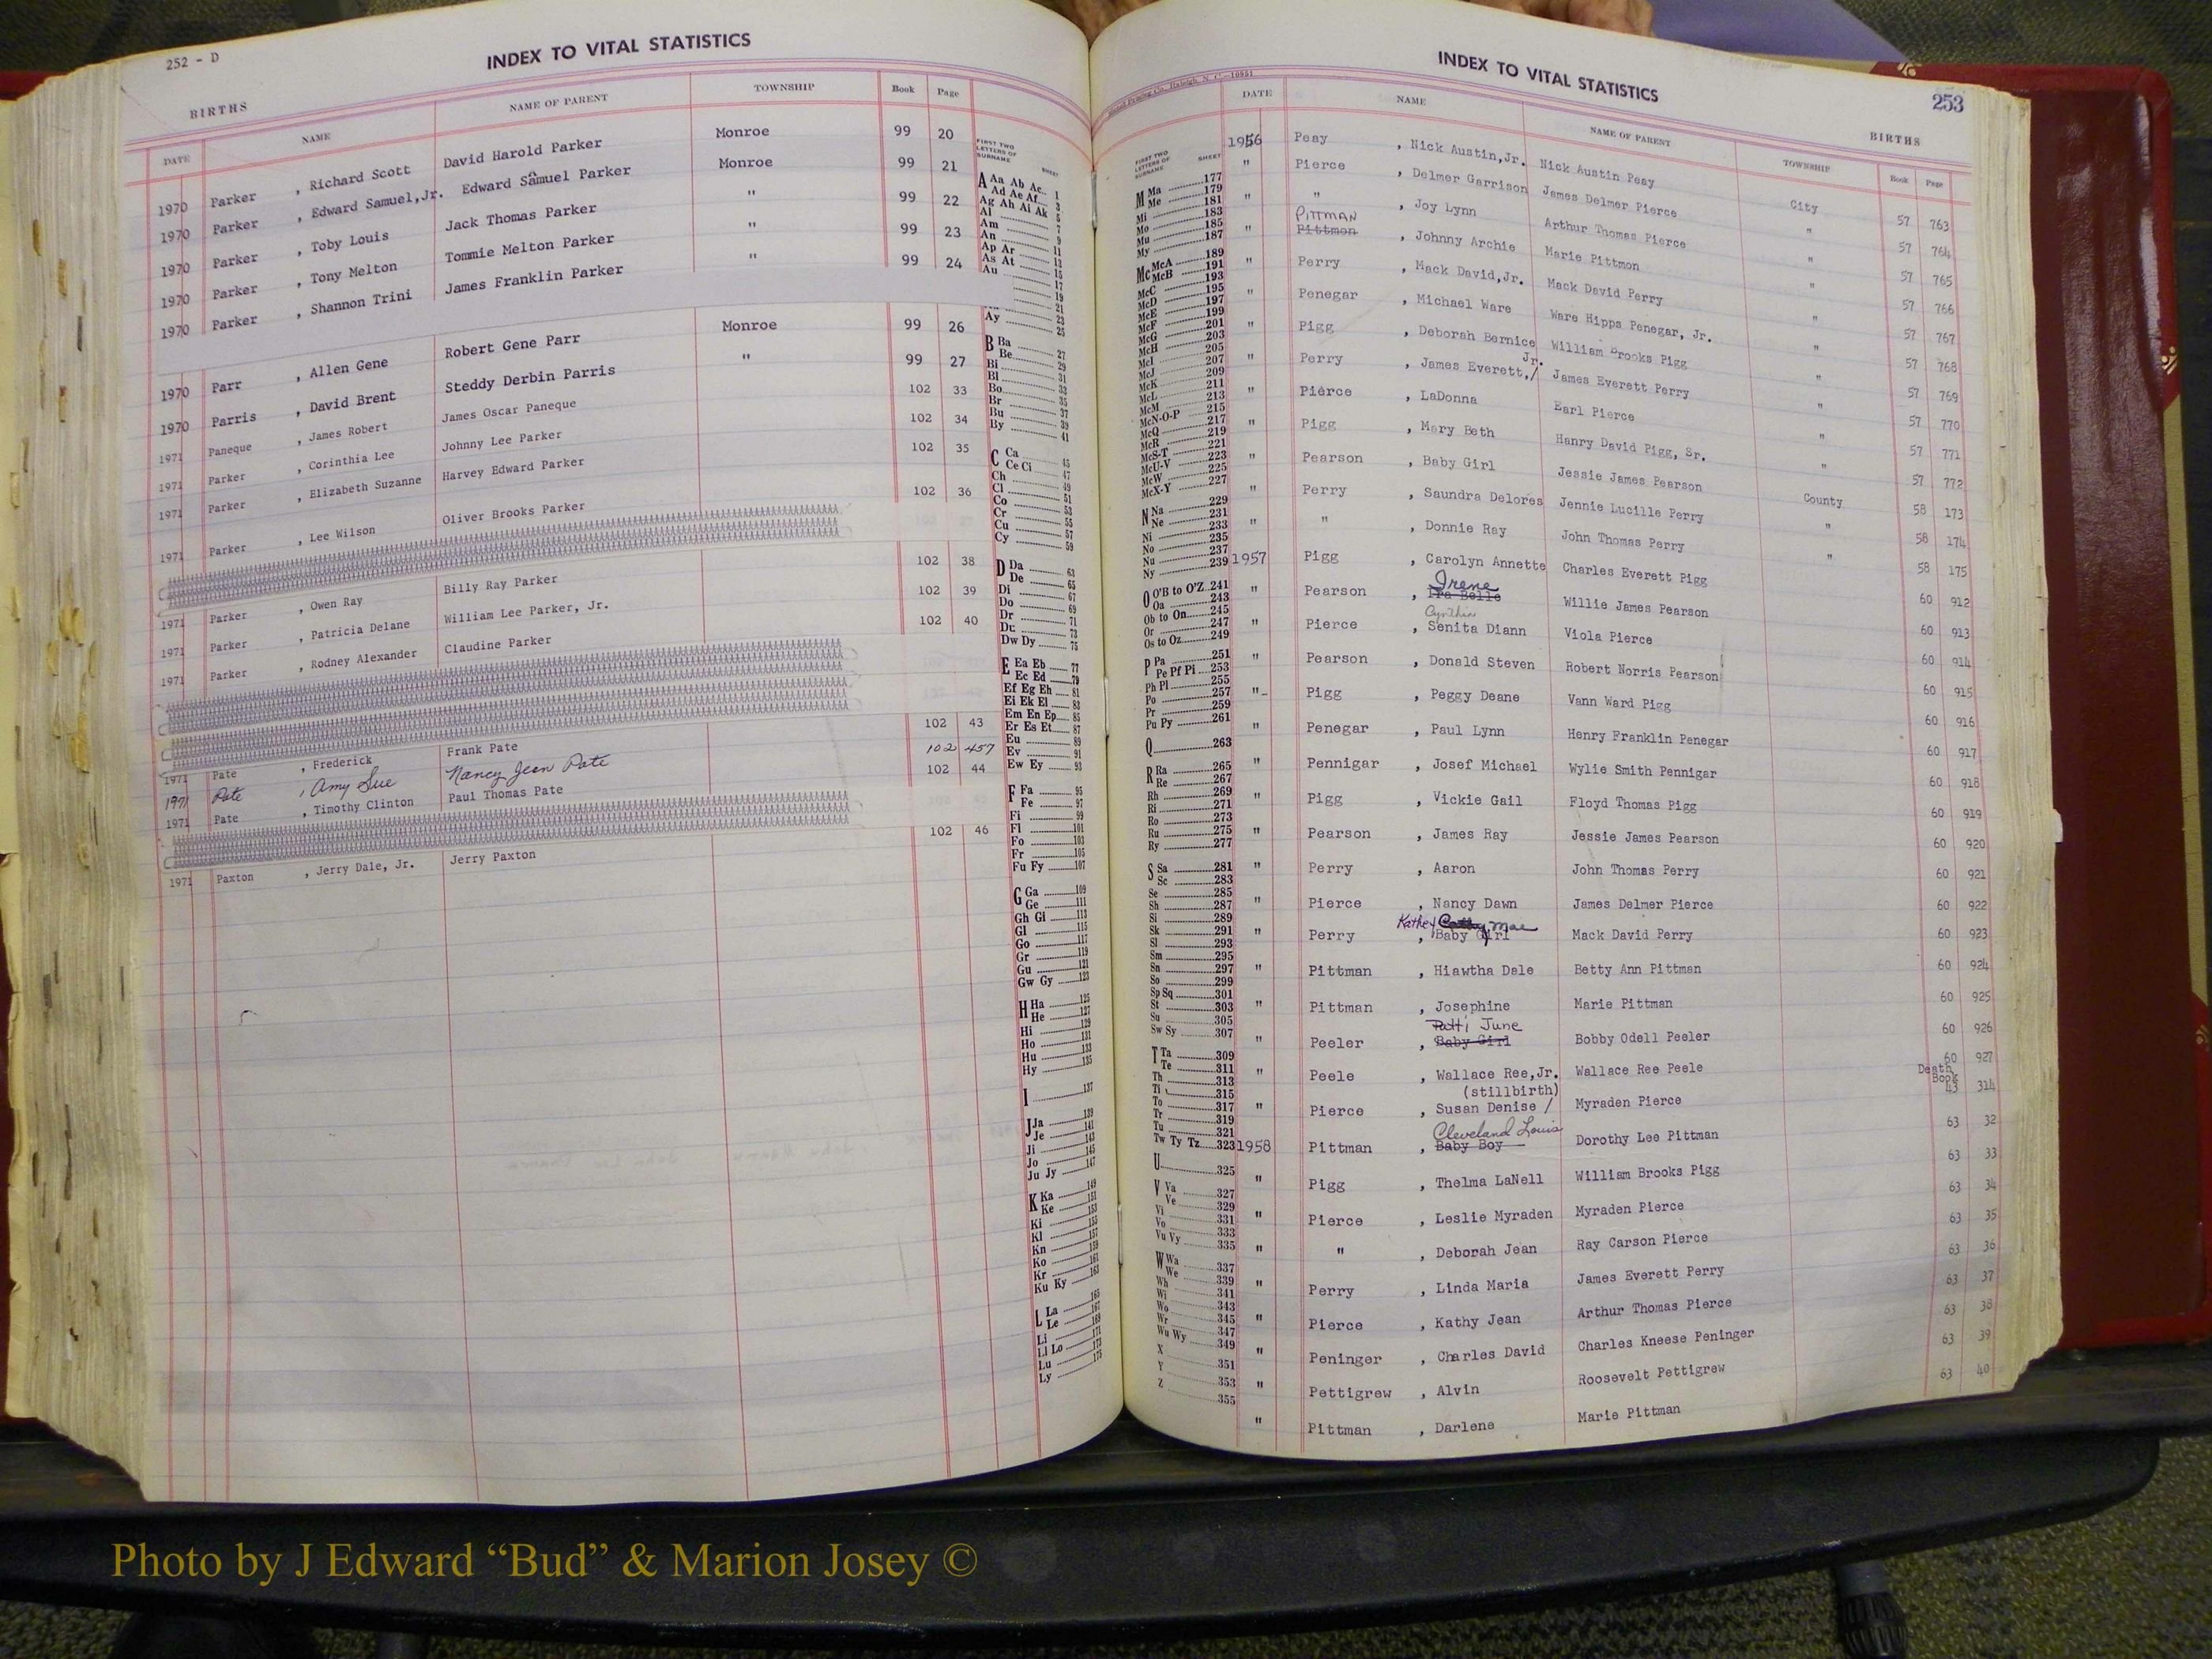 252 - D
INDEX TO VITAL STATISTICS
BIRTHS
DATE NAME NAME OF PARENT TOWNSHIP Book Page
1970 Parker , Richard Scott David Harold Parker Monroe 99 20
1970 Parker , Edward Samuel,Jr. Edward Samuel Parker Monroe 99 21
1970 Parker , Toby Louis Jack Thomas Parker " 99 22
1970 Parker , Tony Melton Tommie Melton Parker " 99 23
1970 Parker , Shannon Trini James Franklin Parker " 99 24
1970 Parr , Allen Gene Robert Gene Parr Monroe 99 26
1970 Parris , David Brent Steddy Derbin Parris " 99 27
1971 Paneque , James Robert James Oscar Paneque 102 33
1971 Parker , Corinthia Lee Johnny Lee Parker 102 34
1971 Parker , Elizabeth Suzanne Harvey Edward Parker 102 35
1971 Parker , Lee Wilson Oliver Brooks Parker 102 36
1971 Parker , Owen Ray Billy Ray Parker 102 38
1971 Parker , Patricia Delane William Lee Parker, Jr. 102 39
1971 Parker , Rodney Alexander Claudine Parker 102 40
1971 Pate , Frederick Frank Pate 102 43
1971 Pate , Amy Sue Nancy Jean Pate 102 457
1971 Pate , Timothy Clinton Paul Thomas Pate 102 44
1971 Paxton , Jerry Dale, Jr. Jerry Paxton 102 46
FIRST TWO LETTERS OF SURNAME SHEET
A Aa Ab Ac 1
Ad Ae Af 3
Ag Ah Ai Ak 5
Al 7
Am 9
An 11
Ap Ar 13
As At 15
Au 17
19
21
23
Ay 25
B Ba 27
Be 29
Bi 31
Bl 33
Bo 35
Br 37
Bu 39
By 41
C Ca 45
Ce Ci 47
Ch 49
Cl 51
Co 53
Cr 55
Cu 57
Cy 59
D Da 63
De 65
Di 67
Do 69
Dr 71
Du 73
Dw Dy 75
E Ea Eb 77
Ec Ed 79
Ef Eg Eh 81
Ei Ek El 83
Em En Ep 85
Er Es Et 87
Eu 89
Ev 91
Ew Ey 93
F Fa 95
Fe 97
Fi 99
Fl 101
Fo 103
Fr 105
Fu Fy 107
G Ga 109
Ge 111
Gh Gi 113
Gl 115
Go 117
Gr 119
Gu 121
Gw Gy 123
H Ha 125
He 127
Hi 129
Ho 131
Hu 133
Hy 135
I 137
J Ja 139
Je 141
Ji 143
Jo 145
Ju Jy 147
K Ka 149
Ke 151
Ki 153
Kl 155
Kn 157
Ko 159
Kr 161
Ku Ky 163
L La 165
Le 167
Li 169
Ll Lo 171
Lu 173
Ly 175
INDEX TO VITAL STATISTICS
253
BIRTHS
Printing Co., Raleigh, N. C.—10951
FIRST TWO LETTERS OF SURNAME SHEET
M Ma 177
Me 179
Mi 181
Mo 183
Mu 185
My 187
Mc McA 189
McB 191
McC 193
McD 195
McE 197
McF 199
McG 201
McH 203
McI 205
McJ 207
McK 209
McL 211
McM 213
McN-O-P 215
McQ 217
McR 219
McS-T 221
McU-V 223
McW 225
McX-Y 227
N Na 229
Ne 231
Ni 233
No 235
Nu 237
Ny 239
O O'B to O'Z 241
Oa 243
Ob to On 245
Or 247
Os to Oz 249
P Pa 251
Pe Pf Pi 253
Ph Pl 255
Po 257
Pr 259
Pu Py 261
Q 263
R Ra 265
Re 267
Rh 269
Ri 271
Ro 273
Ru 275
Ry 277
S Sa 281
Sc 283
Se 285
Sh 287
Si 289
Sk 291
Sl 293
Sm 295
Sn 297
So 299
Sp Sq 301
St 303
Su 305
Sw Sy 307
T Ta 309
Te 311
Th 313
Ti 315
To 317
Tr 319
Tu 321
Tw Ty Tz 323
U 325
V Va 327
Ve 329
Vi 331
Vo 333
Vu Vy 335
W Wa 337
We 339
Wh 341
Wi 343
Wo 345
Wr 347
Wu Wy 349
X 351
Y 353
Z 355
DATE NAME NAME OF PARENT TOWNSHIP Book Page
1956 Peay , Nick Austin,Jr. Nick Austin Peay City 57 763
" Pierce , Delmer Garrison James Delmer Pierce " 57 764
" " , Joy Lynn Arthur Thomas Pierce " 57 765
PITTMAN
" Pittmon , Johnny Archie Marie Pittmon " 57 766
" Perry , Mack David,Jr. Mack David Perry " 57 767
" Penegar , Michael Ware Ware Hipps Penegar, Jr. " 57 768
" Pigg , Deborah Bernice William Brooks Pigg " 57 769
Jr.
" Perry , James Everett,/ James Everett Perry " 57 770
" Pierce , LaDonna Earl Pierce " 57 771
" Pigg , Mary Beth Henry David Pigg, Sr. " 57 772
" Pearson , Baby Girl Jessie James Pearson County 58 173
" Perry , Saundra Delores Jennie Lucille Perry " 58 174
" " , Donnie Ray John Thomas Perry " 58 175
1957 Pigg , Carolyn Annette Charles Everett Pigg 60 912
Irene
" Pearson , Ira Belle Willie James Pearson 60 913
Cynthia
" Pierce , Senita Diann Viola Pierce 60 914
" Pearson , Donald Steven Robert Norris Pearson 60 915
" Pigg , Peggy Deane Vann Ward Pigg 60 916
" Penegar , Paul Lynn Henry Franklin Penegar 60 917
" Pennigar , Josef Michael Wylie Smith Pennigar 60 918
" Pigg , Vickie Gail Floyd Thomas Pigg 60 919
" Pearson , James Ray Jessie James Pearson 60 920
" Perry , Aaron John Thomas Perry 60 921
" Pierce , Nancy Dawn James Delmer Pierce 60 922
Kathey Cathy Mae
" Perry , Baby Girl Mack David Perry 60 923
" Pittman , Hiawtha Dale Betty Ann Pittman 60 924
" Pittman , Josephine Marie Pittman 60 925
Patti June
" Peeler , Baby Girl Bobby Odell Peeler 60 926
" Peele , Wallace Ree,Jr. Wallace Ree Peele 60 927
(stillbirth)
" Pierce , Susan Denise / Myraden Pierce Death Book 43 314
Cleveland Louis
1958 Pittman , Baby Boy Dorothy Lee Pittman 63 32
" Pigg , Thelma LaNell William Brooks Pigg 63 33
" Pierce , Leslie Myraden Myraden Pierce 63 34
" " , Deborah Jean Ray Carson Pierce 63 35
" Perry , Linda Maria James Everett Perry 63 36
" Pierce , Kathy Jean Arthur Thomas Pierce 63 37
" Peninger , Charles David Charles Kneese Peninger 63 38
" Pettigrew , Alvin Roosevelt Pettigrew 63 39
" Pittman , Darlene Marie Pittman 63 40
Photo by J Edward “Bud” & Marion Josey ©